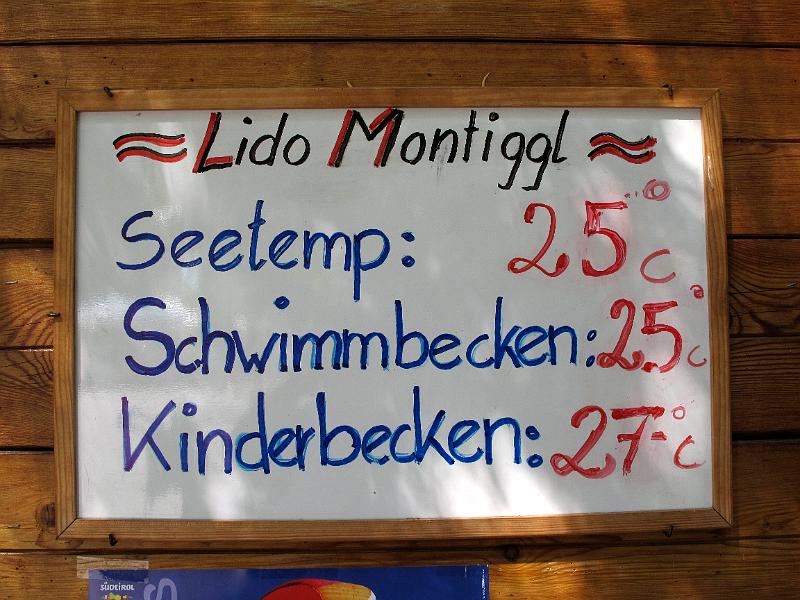 ≈ Lido Montiggl ≈
Seetemp: 25°C
Schwimmbecken: 25°C
Kinderbecken: 27°C
SÜDTIROL